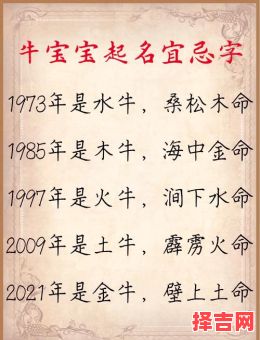 牛宝宝起名宜忌字
1973年是水牛，桑松木命
1985年是木牛，海中金命
1997年是火牛，涧下水命
2009年是土牛，霹雳火命
2021年是金牛，壁上土命
择吉网